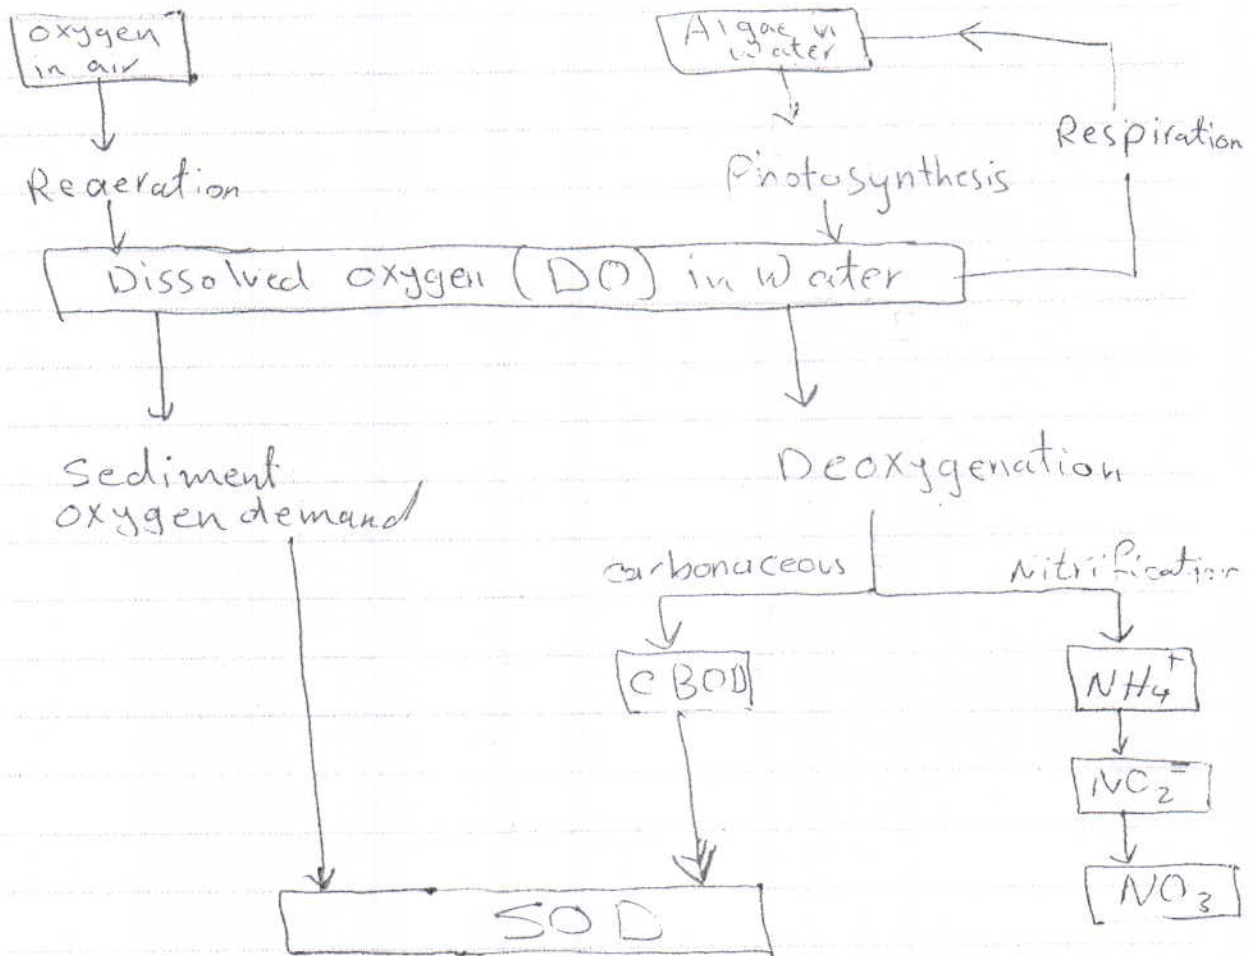 Oxygen
in air
Algae in
water
Respiration
Reaeration
Photosynthesis
Dissolved oxygen (DO) in Water
Sediment
oxygen demand
Deoxygenation
carbonaceous
Nitrification
CBOD
NH₄⁺
NO₂⁼
NO₃
SOD